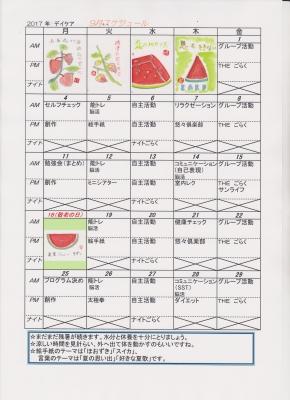 2017 年 デイケア 9月スケジュール
月 火 水 木 金
1
AM グループ活動
PM THE ごらく
ナイト
4 5 6 7 8
AM セルフチェック 脳トレ 脳活 自主活動 リラクゼーション グループ活動
PM 創作 絵手紙 自主活動 悠々倶楽部 THE ごらく
ナイト ナイトごらく
11 12 13 14 15
AM 勉強会(まとめ) 脳トレ 脳活 自主活動 コミュニケーション (自己表現) 脳活 グループ活動
PM 創作 ミニシアター 自主活動 室内レク THE ごらく サンライフ
ナイト ナイトごらく
18(敬老の日) 19 20 21 22
AM 脳トレ 脳活 自主活動 健康チェック グループ活動
PM 絵手紙 自主活動 悠々倶楽部 THE ごらく
ナイト ナイトごらく
25 26 27 28 29
AM プログラム決め 脳トレ 脳活 自主活動 コミュニケーション (SST) 脳活 グループ活動
PM 創作 太極拳 自主活動 ダイエット THE ごらく
ナイト ナイトごらく
☆まだまだ残暑が続きます。水分と休養を十分にとりましょう。
☆涼しい時間を見計らい、外へ出て体を動かすのもいいですね。
☆絵手紙のテーマは「ほおずき」「スイカ」、
言葉のテーマは「夏の思い出」「好きな夏歌」です。